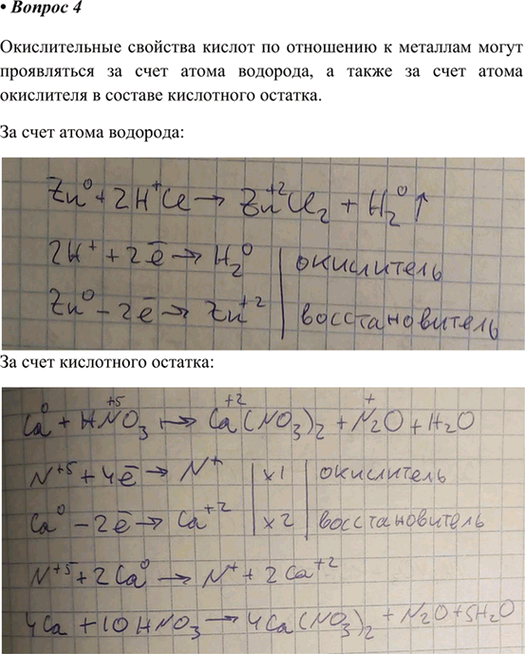 • Вопрос 4
Окислительные свойства кислот по отношению к металлам могут
проявляться за счет атома водорода, а также за счет атома
окислителя в составе кислотного остатка.
За счет атома водорода:
Zn⁰ + 2H⁺Cl → Zn⁺²Cl₂ + H₂⁰↑
2H⁺ + 2ē → H₂⁰ | окислитель
Zn⁰ – 2ē → Zn⁺² | восстановитель
За счет кислотного остатка:
Ca⁰ + HN⁺⁵O₃ → Ca⁺²(NO₃)₂ + N₂⁺O + H₂O
N⁺⁵ + 4ē → N⁺ | x1 | окислитель
Ca⁰ – 2ē → Ca⁺² | x2 | восстановитель
N⁺⁵ + 2Ca⁰ → N⁺ + 2Ca⁺²
4Ca + 10HNO₃ → 4Ca(NO₃)₂ + N₂O + 5H₂O